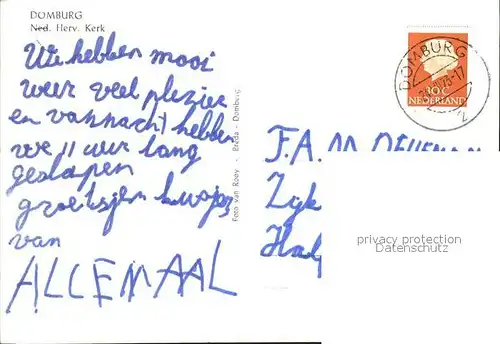 DOMBURG
Ned. Herv. Kerk
We hebben mooi
weer veel plezier
en vannacht hebben
we 11 uur lang
geslapen
groetsjes
van
ALLEMAAL
Foto van Rooy - Breda - Domburg
DOMBURG
30 C
NEDERLAND
F.A.
privacy protection
Datenschutz